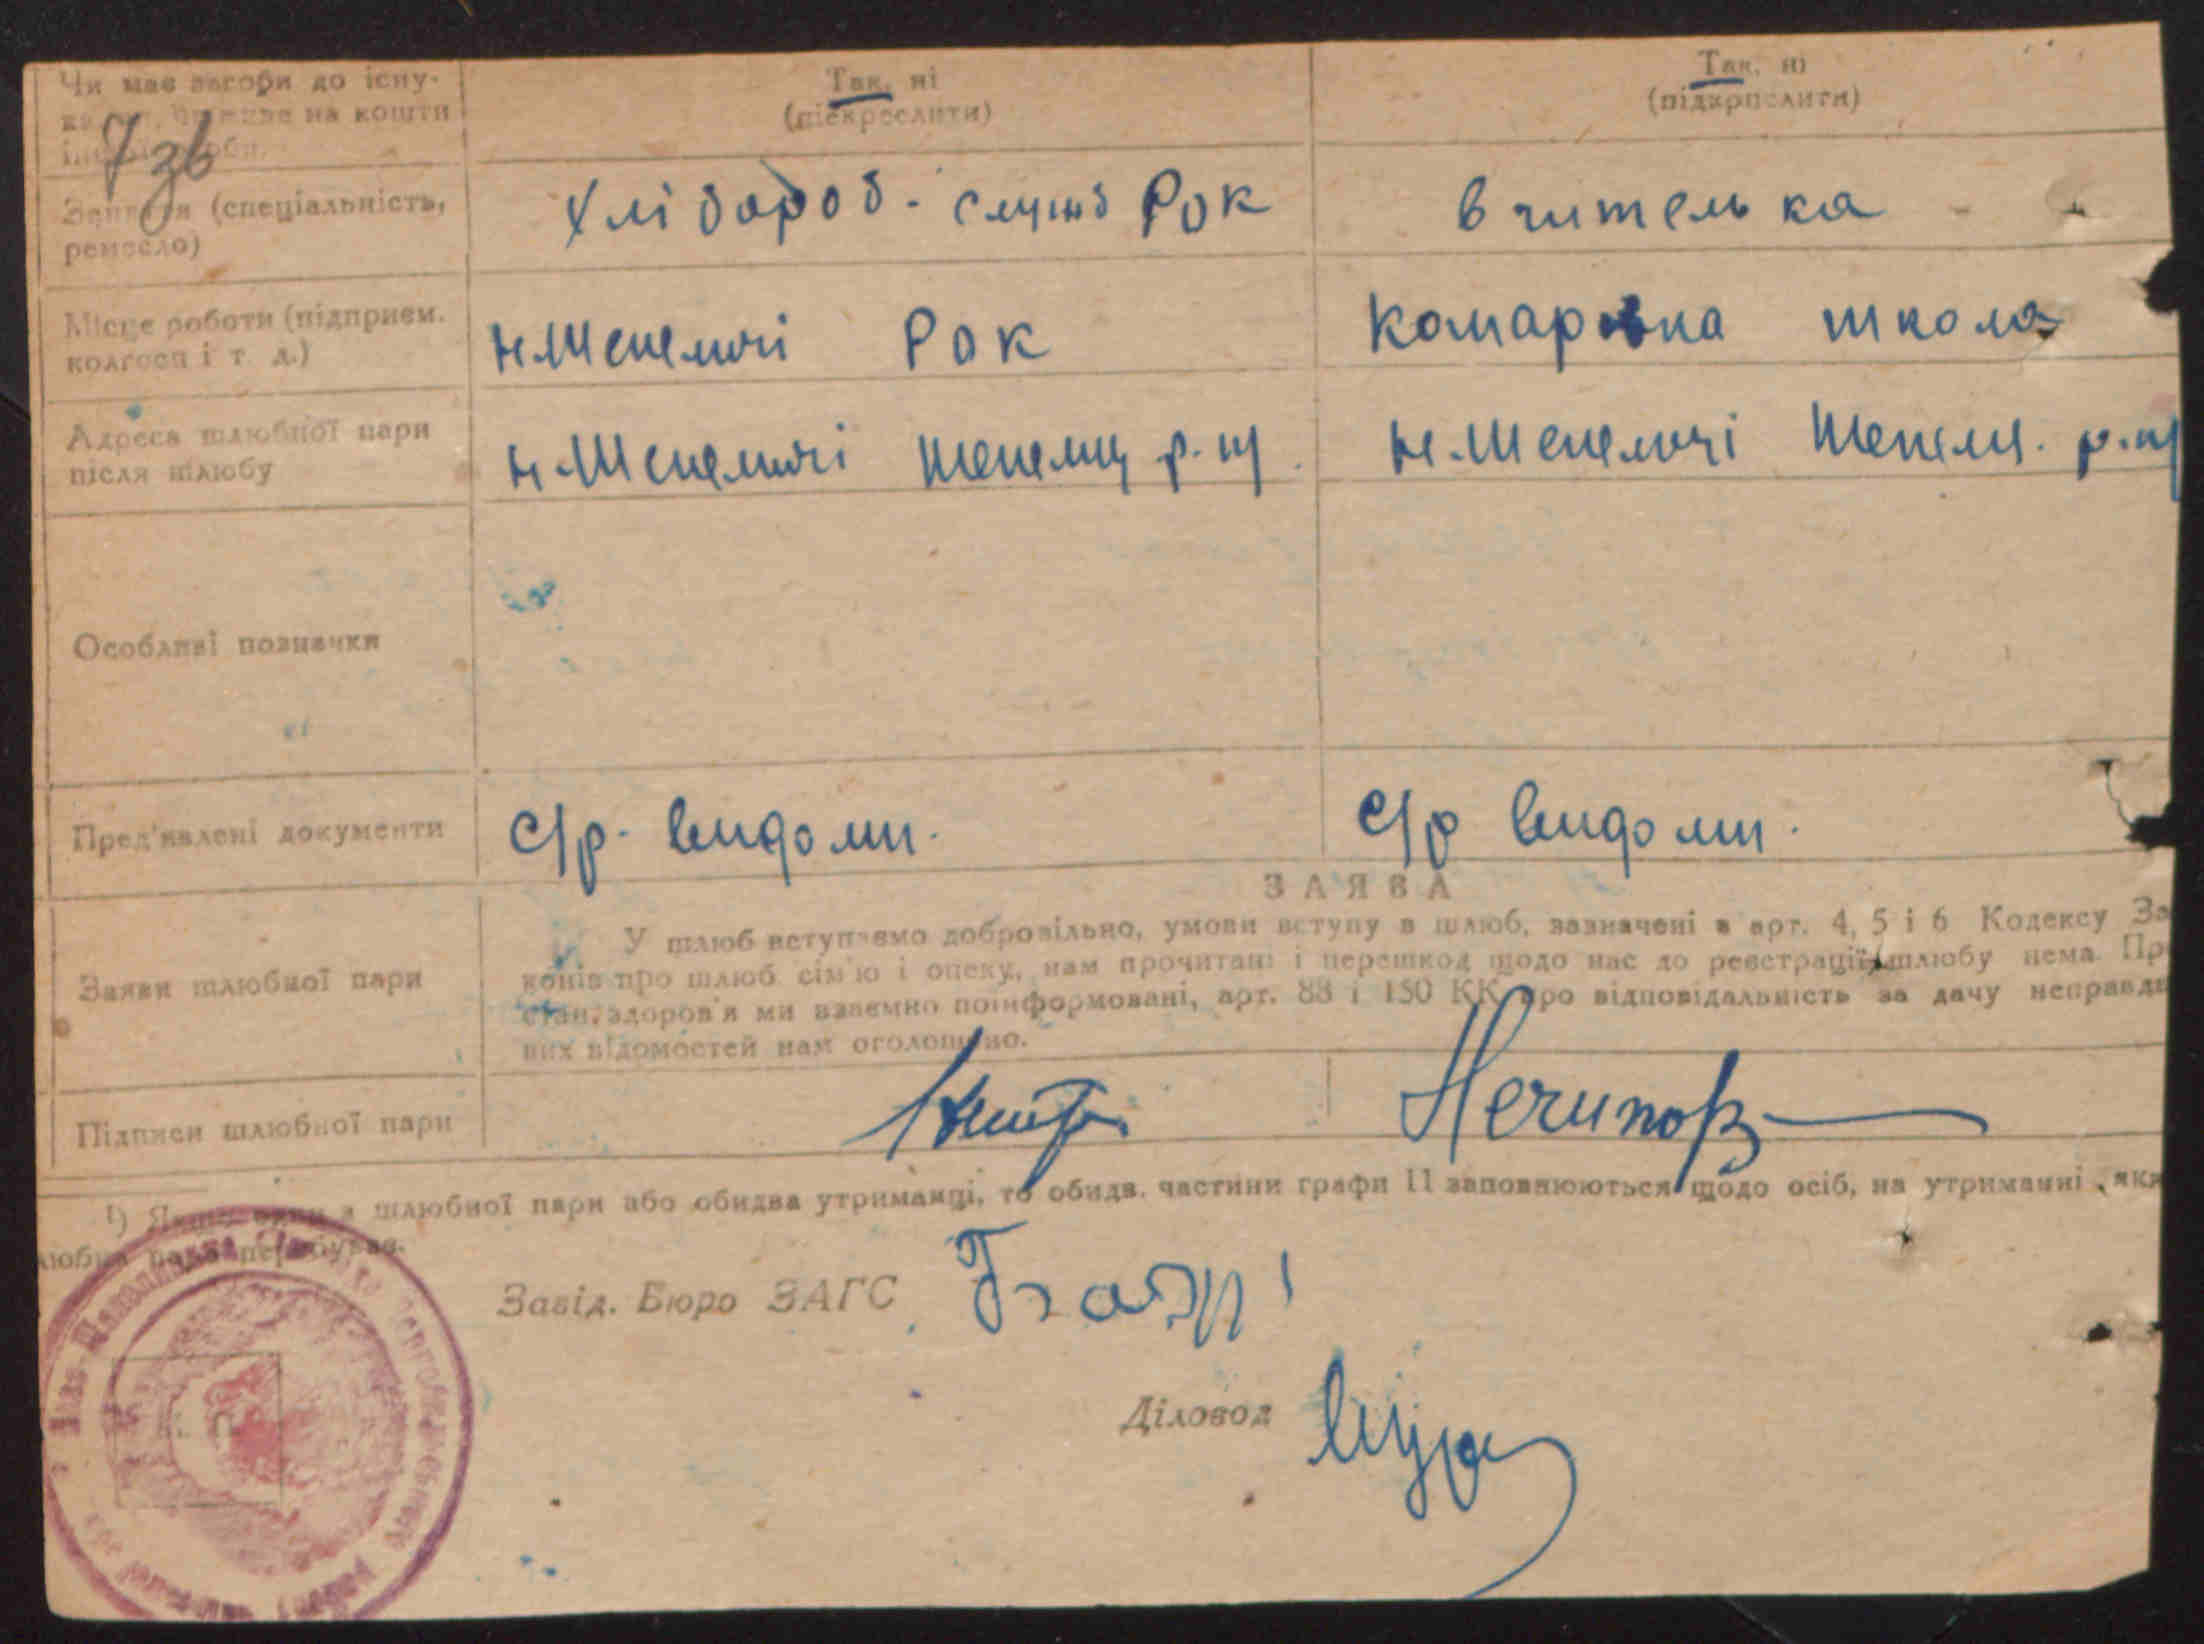 Чи має засоби до існу-
на кошти
7 зв
Так, ні
(підкреслити)
Так, ні
(підкреслити)
Заняття (спеціальність,
ремесло)
Хлібороб - служб РОК
вчителька
Місце роботи (підприєм.
колгосп і т. д.)
Н. Шепеличі РОК
Комаровка школа
Адреса шлюбної пари
після шлюбу
Н. Шепеличі Шепелич р-ну
Н. Шепеличі Шепелич. р-ну
Особливі позначки
Пред'явлені документи
с/р. видоми.
с/р видоми.
ЗАЯВА
Заяви шлюбної пари
У шлюб вступаємо добровільно, умови вступу в шлюб, зазначені в арт. 4, 5 і 6 Кодексу За
конів про шлюб сім'ю і опеку, нам прочитані і перешкод щодо нас до реєстрації шлюбу нема. Про
стан здоров'я ми взаємно поінформовані, арт. 88 і 130 КК про відповідальність за дачу неправди
вих відомостей нам оголошено.
Підписи шлюбної пари
Нечипор
¹) Якщо один з шлюбної пари або обидва утриманці, то обидв. частини графи 11 заповнюються щодо осіб, на утриманні яки
любна пара перебуває.
Завід. Бюро ЗАГС
Діловод